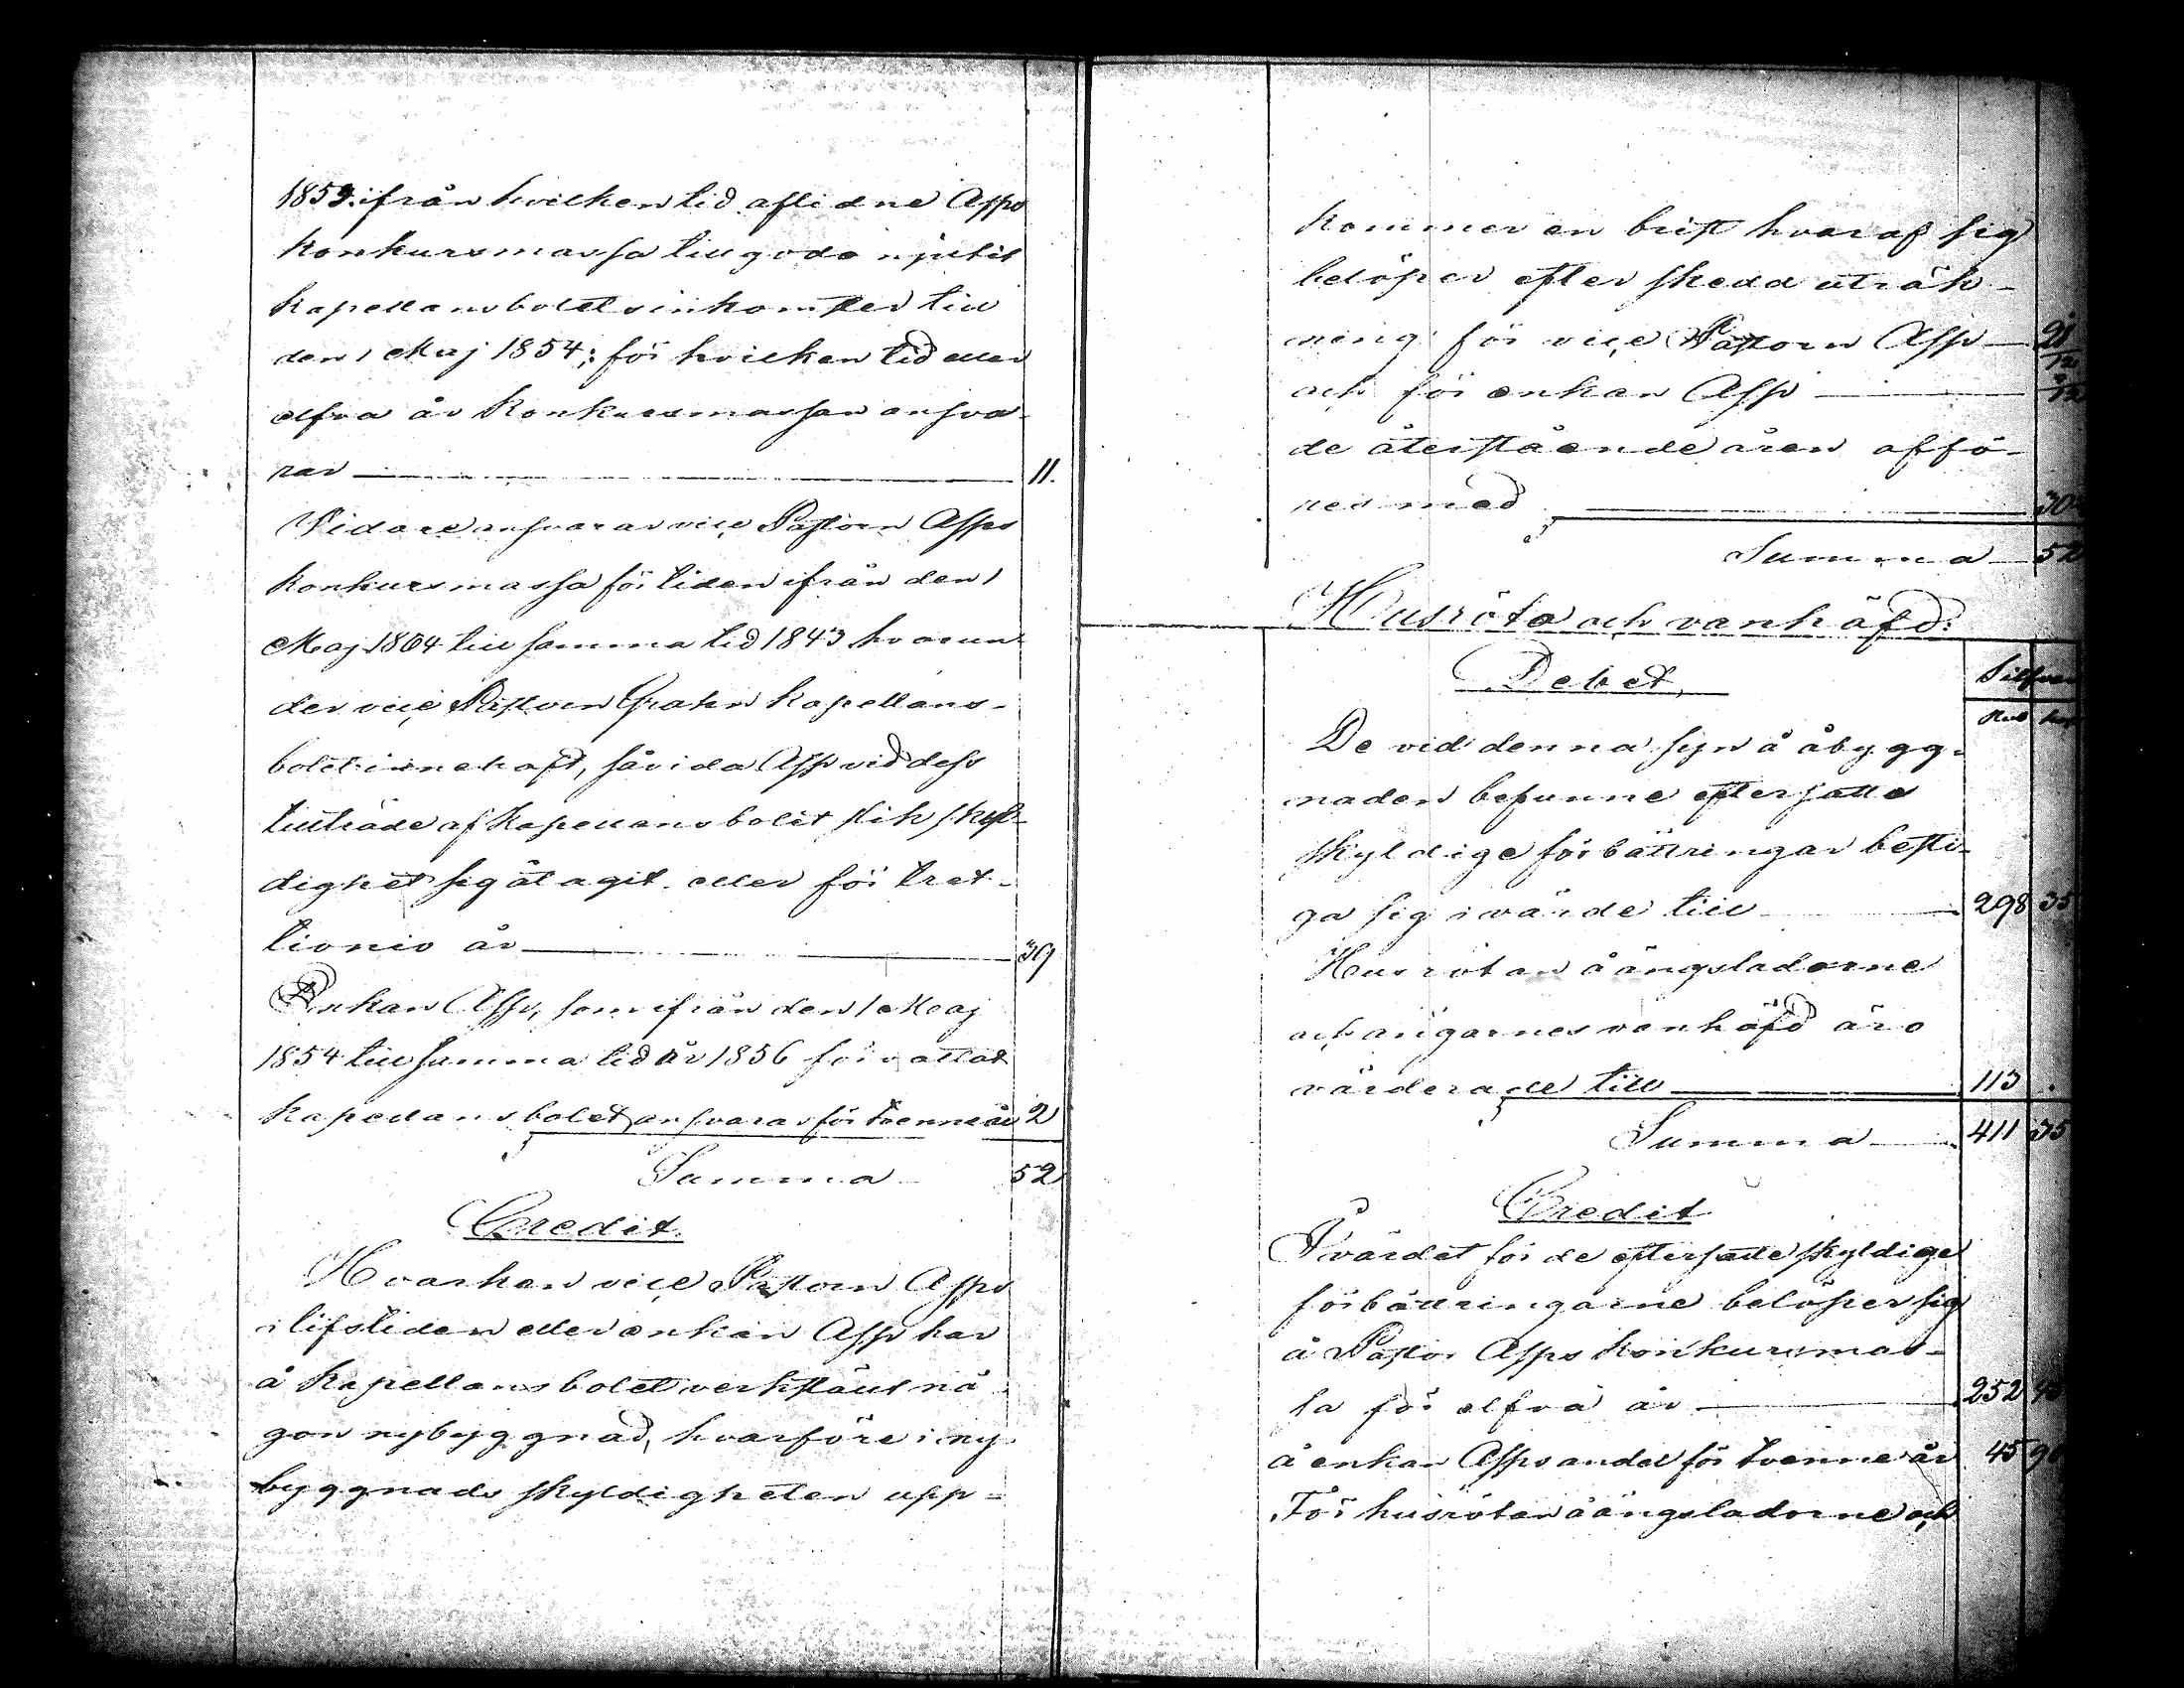 1853. ifrån hvilken tid aflidne Asps
konkursmassa tillgodo njutit
kapellansbolets inkomster till
den 1 Maj 1854; för hvilken tid eller
elfva år konkursmassan ansva-
rar 11.
Vidare ansvarar vice Pastorn Asps
konkursmassa för tiden ifrån den 1
Maj 1804 till samma tid 1843 hvarun-
der vice Pastorn Grahn kapellans-
bolet innehaft, såvida Asp vid dess
tillträde af kapellansbolet slik skyl-
dighet sig åtagit eller för tret-
tionio år 39
Enkan Asp, som ifrån den 1 Maj
1854 till samma tid år 1856 förvaltat
kapellansbolet, ansvarar för tvenne år 2
Summa 52
Credit.
Hvarken vice Pastorn Asp
i lifstiden eller enkan Asp har
å kapellansbolet verkstält nå-
gon nybyggnad, hvarföre i ny-
byggnads skyldigheten upp-
kommer en brist hvaraf sig
belöper efter skedd uträk-
ning för vice Pastorn Asp 21
och för enkan Asp
de återstående åren affö-
res med 30
Summa 52
Husröta och vanhäfd.
Debet, Silfver
Rub kop
De vid denna syn å åbygg-
naden befunne eftersatte
skyldige förbättringar besti-
ga sig i värde till 298 35
Husrötan å ängsladorne
och ängarnes vanhäfd äro
värderade till 113 .
Summa 411 35
Credit
I värdet för de eftersatte skyldige
förbättringarne belöper sig
å Pastor Asps konkursmas-
sa för elfva år 252
å enkan Asps andel för tvenne år 45 90
För husrötan å ängsladorne och